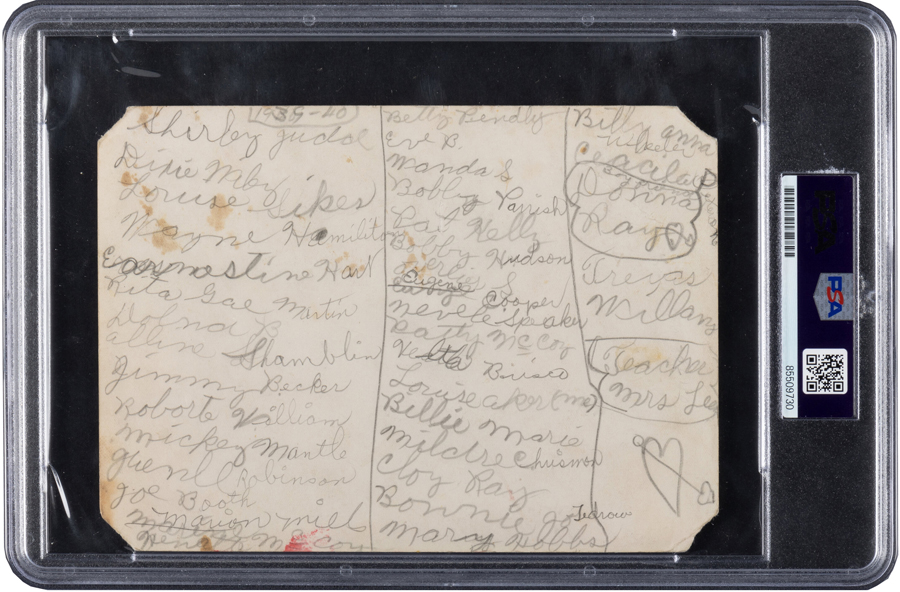 1939-40
Shirley Judal
Dixie Mby
Louise Sikes
Mayne Hamiliton
Earnostine Hart
Rita Gae Martin
Dolna B
alline Shamblin
Jimmy Becker
Roborte William
Mickey Mantle
Robinson
Joe Booth
Marion Mills
McCoy
Betty Bendly
Eve B.
Wanda S
Bobby Parish
Pat Kelly
Bobby Hudson
S
Eugene Cooper
Nevele Speaker
Patty McCoy
Velta Brisco
Louise aker (me)
Billie Marie
Mildre Chrismon
Cloy Ray
Bonnie Jo Tedrow
Mary Hobbs
Billy ann
Ceacila
Donna
Ray
Treyas
Millang
Teache
Mrs Lee
PSA
85509730